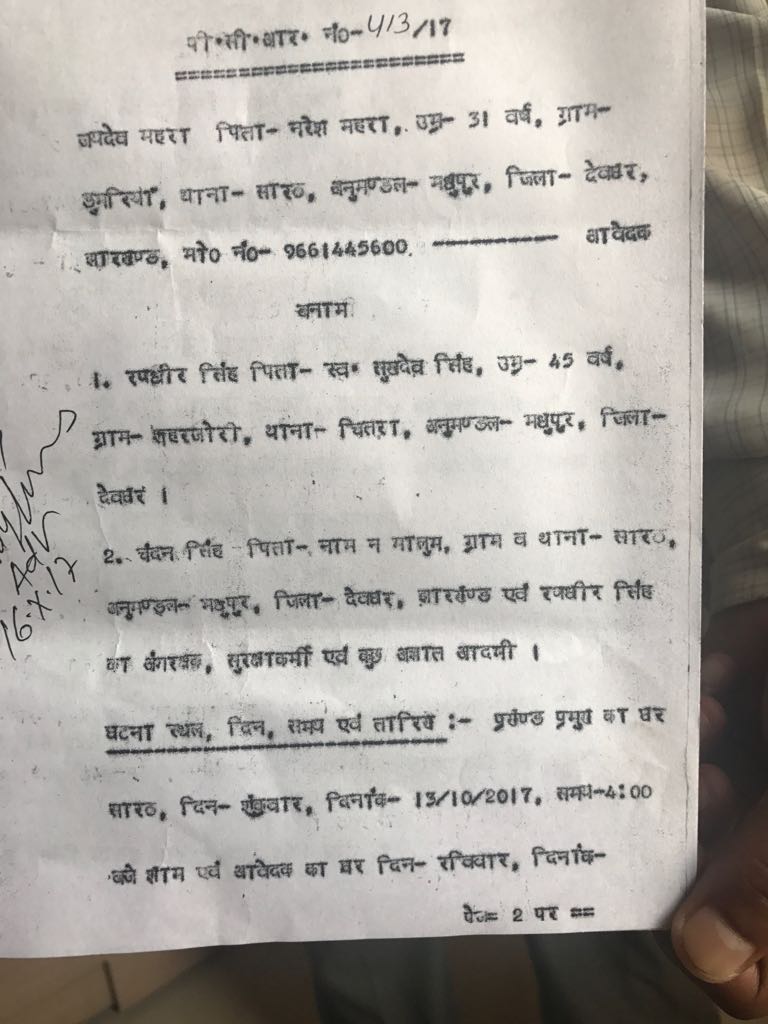 पी॰सी॰आर॰ नं0-413/17
जयदेव महरा पिता- नरेश महरा, उम्र- 31 वर्ष, ग्राम-
डुमरिया, थाना- सारठ, अनुमण्डल- मधुपुर, जिला- देवघर,
झारखण्ड, मो0 नं0- 9661445600. ---------- आवेदक
बनाम
1. रणधीर सिंह पिता- स्व॰ सुखदेव सिंह, उम्र- 45 वर्ष,
ग्राम- लहरजोरी, थाना- चितरा, अनुमण्डल- मधुपुर, जिला-
देवघर ।
2. चंदन सिंह पिता- नाम न मालुम, ग्राम व थाना- सारठ,
अनुमण्डल- मधुपुर, जिला- देवघर, झारखण्ड एवं रणधीर सिंह
का अंगरक्षक, सुरक्षाकर्मी एवं कुछ अज्ञात आदमी ।
घटना स्थल, दिन, समय एवं तारिख :- प्रखण्ड प्रमुख का घर
सारठ, दिन- शुक्रवार, दिनांक- 13/10/2017, समय-4:00
बजे शाम एवं आवेदक का घर दिन- रविवार, दिनांक-
पेज= 2 पर ==
Adv
16.X.17